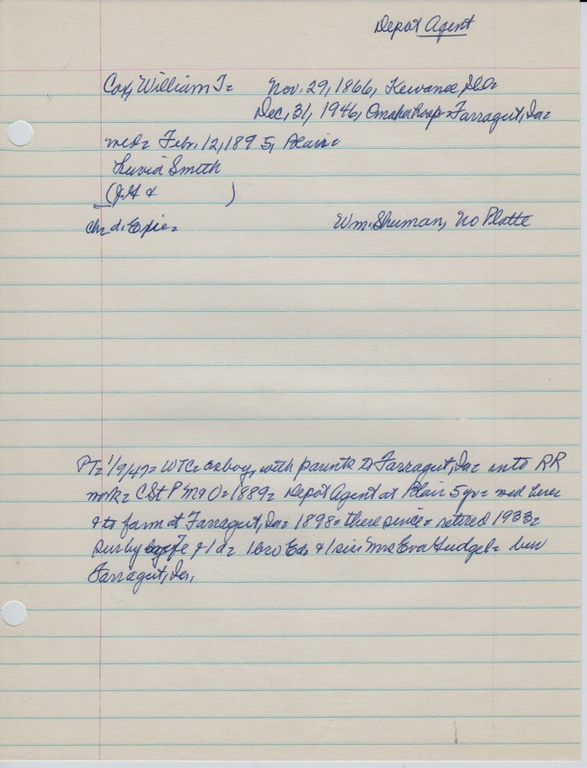 Depot Agent
Cox, William T= Nov. 29, 1866, Kewanee, Ill=
Dec, 31, 1946, Omaha Hosp= Farragut, Ia=
wed= Feb. 12, 1895, Blair=
Luvia Smith
(J.H & )
ch= d. Exie= Wm. Shuman, No Platte
PT= 1/9/47= WTC= as boy, with parents to Farragut, Ia= into RR
work= CStPM&O= 1889= Depot Agent at Blair 5 yr= wed here
& to farm at Farragut, Ia= 1898= there since= retired 1933=
surv by wife & 1 d= 1 bro Ed, & 1 sis Mrs Eva Gudgel= bur
Farragut, Ia.